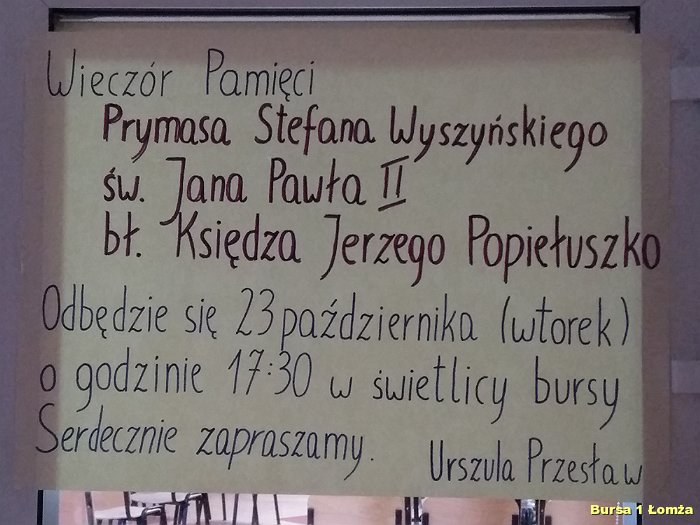 Wieczór Pamięci
Prymasa Stefana Wyszyńskiego
św. Jana Pawła II
bł. Księdza Jerzego Popiełuszko
Odbędzie się 23 października (wtorek)
o godzinie 17:30 w świetlicy bursy
Serdecznie zapraszamy.
Urszula Przesław
Bursa 1 Łomża